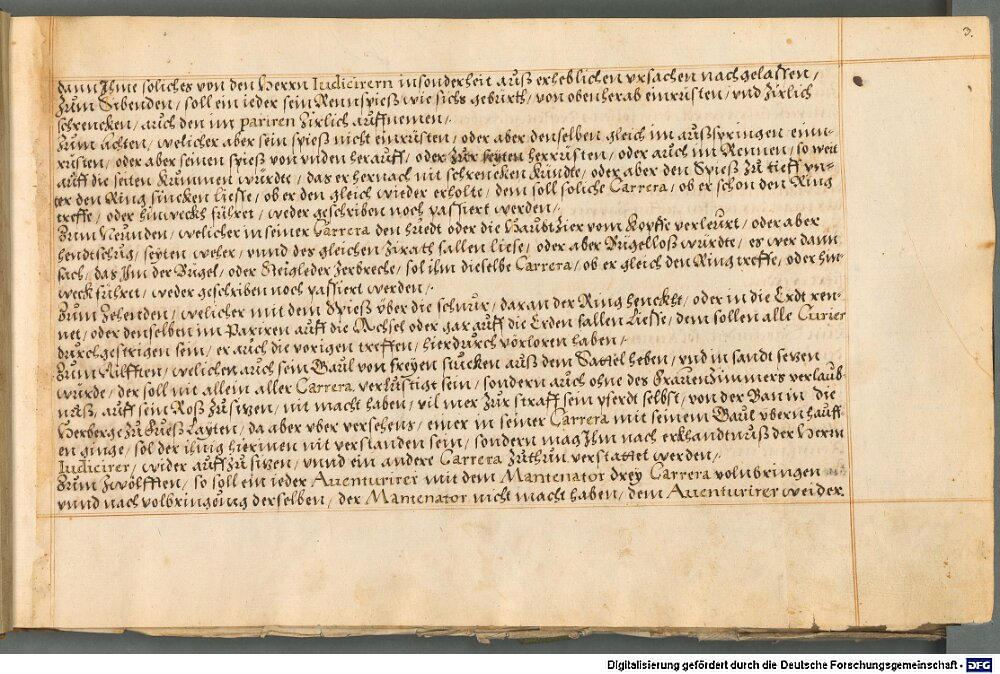 3.
dann Ihme soliches von den Herrn Iudicirern insonderheit auß erheblichen vrsachen nachgelassen /
Zum Sibenden / soll ein ieder sein Rennspieß wie sichs gebürth / von obenherab einrüsten / vnd Zirlich
schrencken / auch den im pariren Zirlich auffnemen /.
Zum achten / welicher aber sein spieß nicht einrüsten / oder aber denselben gleich im außspringen einn-
rüsten / oder aber seinen spieß von vnden herauff / oder Zur seyten herrüsten / oder auch im Rennen / so weit
auff die seiten Krummen würdte / das er hernach nit schrencken Kündte / oder aber den Spieß Zu tieff vn-
ter den Ring sincken liesse / ob er den gleich wieder erholte / dem soll soliche Carrera / ob er schon den Ring
treffe / oder hinweckh führet / weder geschriben noch passiert werden /.
Zum Neunden / welicher in seiner Carrera den huedt oder die Haubt Zier vom Kopffe verleurt / oder aber
hendtschug / seyten weher / vnnd des gleichen Zirath fallen liese / oder aber Bügelloß würdte / es wer dann
sach / das Im der Bügel / oder Steigleder Zerbreche / sol ihm dieselbe Carrera / ob er gleich den Ring treffe / oder hin-
weck führet / weder geschriben noch passiert werden /.
Zum Zehenden / welicher mit dem Spieß über die schnur / daran der Ring henckht / oder in die Erdt ren-
net / oder denselben im Pariren auff die Achsel oder gar auff die Erden fallen Liesse / dem sollen alle Carier
durchgestrigen sein / er auch die vorigen treffen / hierdurch vorloren haben /.
Zum Ailfften / welichen auch sein Gaul von freyen stucken auß dem Sattel heben / vnd in sandt sezen
würde / der soll nit allein aller Carrera verlustigt sein / sondern auch ohne des FrauenZimmers verlaub-
nuß / auff sein Roß Zu sizen / nit macht haben / vil mer Zur straff sein pferdt selbst / von der Ban in die
Herberge Zu Fueß Layten / da aber vber versehens / einer in seiner Carrera mit seinem Gaul vbern hauff-
en ginge / sol der ihnig hierinen nit verstanden sein / sondern mag Ihm nach erkhandtnuß der Herrn
Iudicirer / wider auf Zu sizen / vnnd ein andere Carrera Zuthun verstattet werden /.
Zum Zwölfften / so soll ein ieder Auenturirer mit dem Mantenator drey Carrera volnbringen
vnnd nach volbringoung derselben / der Mantenator nicht macht haben / dem Auenturirer weider
Digitalisierung gefördert durch die Deutsche Forschungsgemeinschaft - DFG